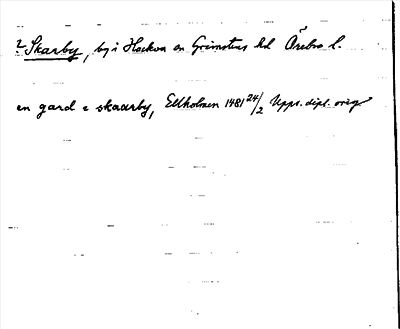 ? Skarby, by i Hackvad sn Grimstens hd Örebro l.
en gard e skaarby, Ekholmen 1481 24/2 Upps. dipl. orig